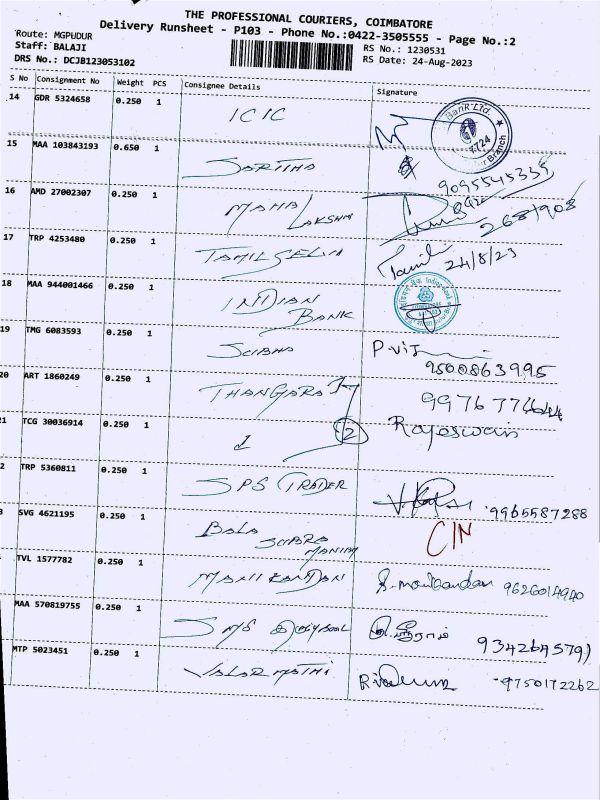 THE PROFESSIONAL COURIERS, COIMBATORE
Delivery Runsheet - P103 - Phone No.:0422-3505555 - Page No.:2
Route: MGPUDUR
RS No.: 1230531
Staff: BALAJI
RS Date: 24-Aug-2023
DRS No.: DCJB123053102
S No Consignment No Weight PCS Consignee Details Signature
14 GDR 5324658 0.250 1 ICIC
Bank Ltd.
1724
Branch
15 MAA 103843193 0.650 1
9095545335
16 AMD 27002307 0.250 1 MAHA LAKSHMI
2681908
17 TRP 4253480 0.250 1 TAMILSELVI Tamil 24/8/23
18 MAA 944001466 0.250 1 INDIAN BANK
19 TMG 6083593 0.250 1 P.Vij
9500863995
20 ART 1860249 0.250 1 THANGARAJ
21 TCG 30036914 0.250 1 2 Rajeswari
2 TRP 5360811 0.250 1 SPS TRADER 9965587288
3 SVG 4621195 0.250 1 BALA SUBRAMANIAM CIN
TVL 1577782 0.250 1 MANIKANDAN S. manikandan 9626014940
MAA 570819755 0.250 1 SMS 9342645791
MTP 5023451 0.250 1 VALARMATHI 9750172262